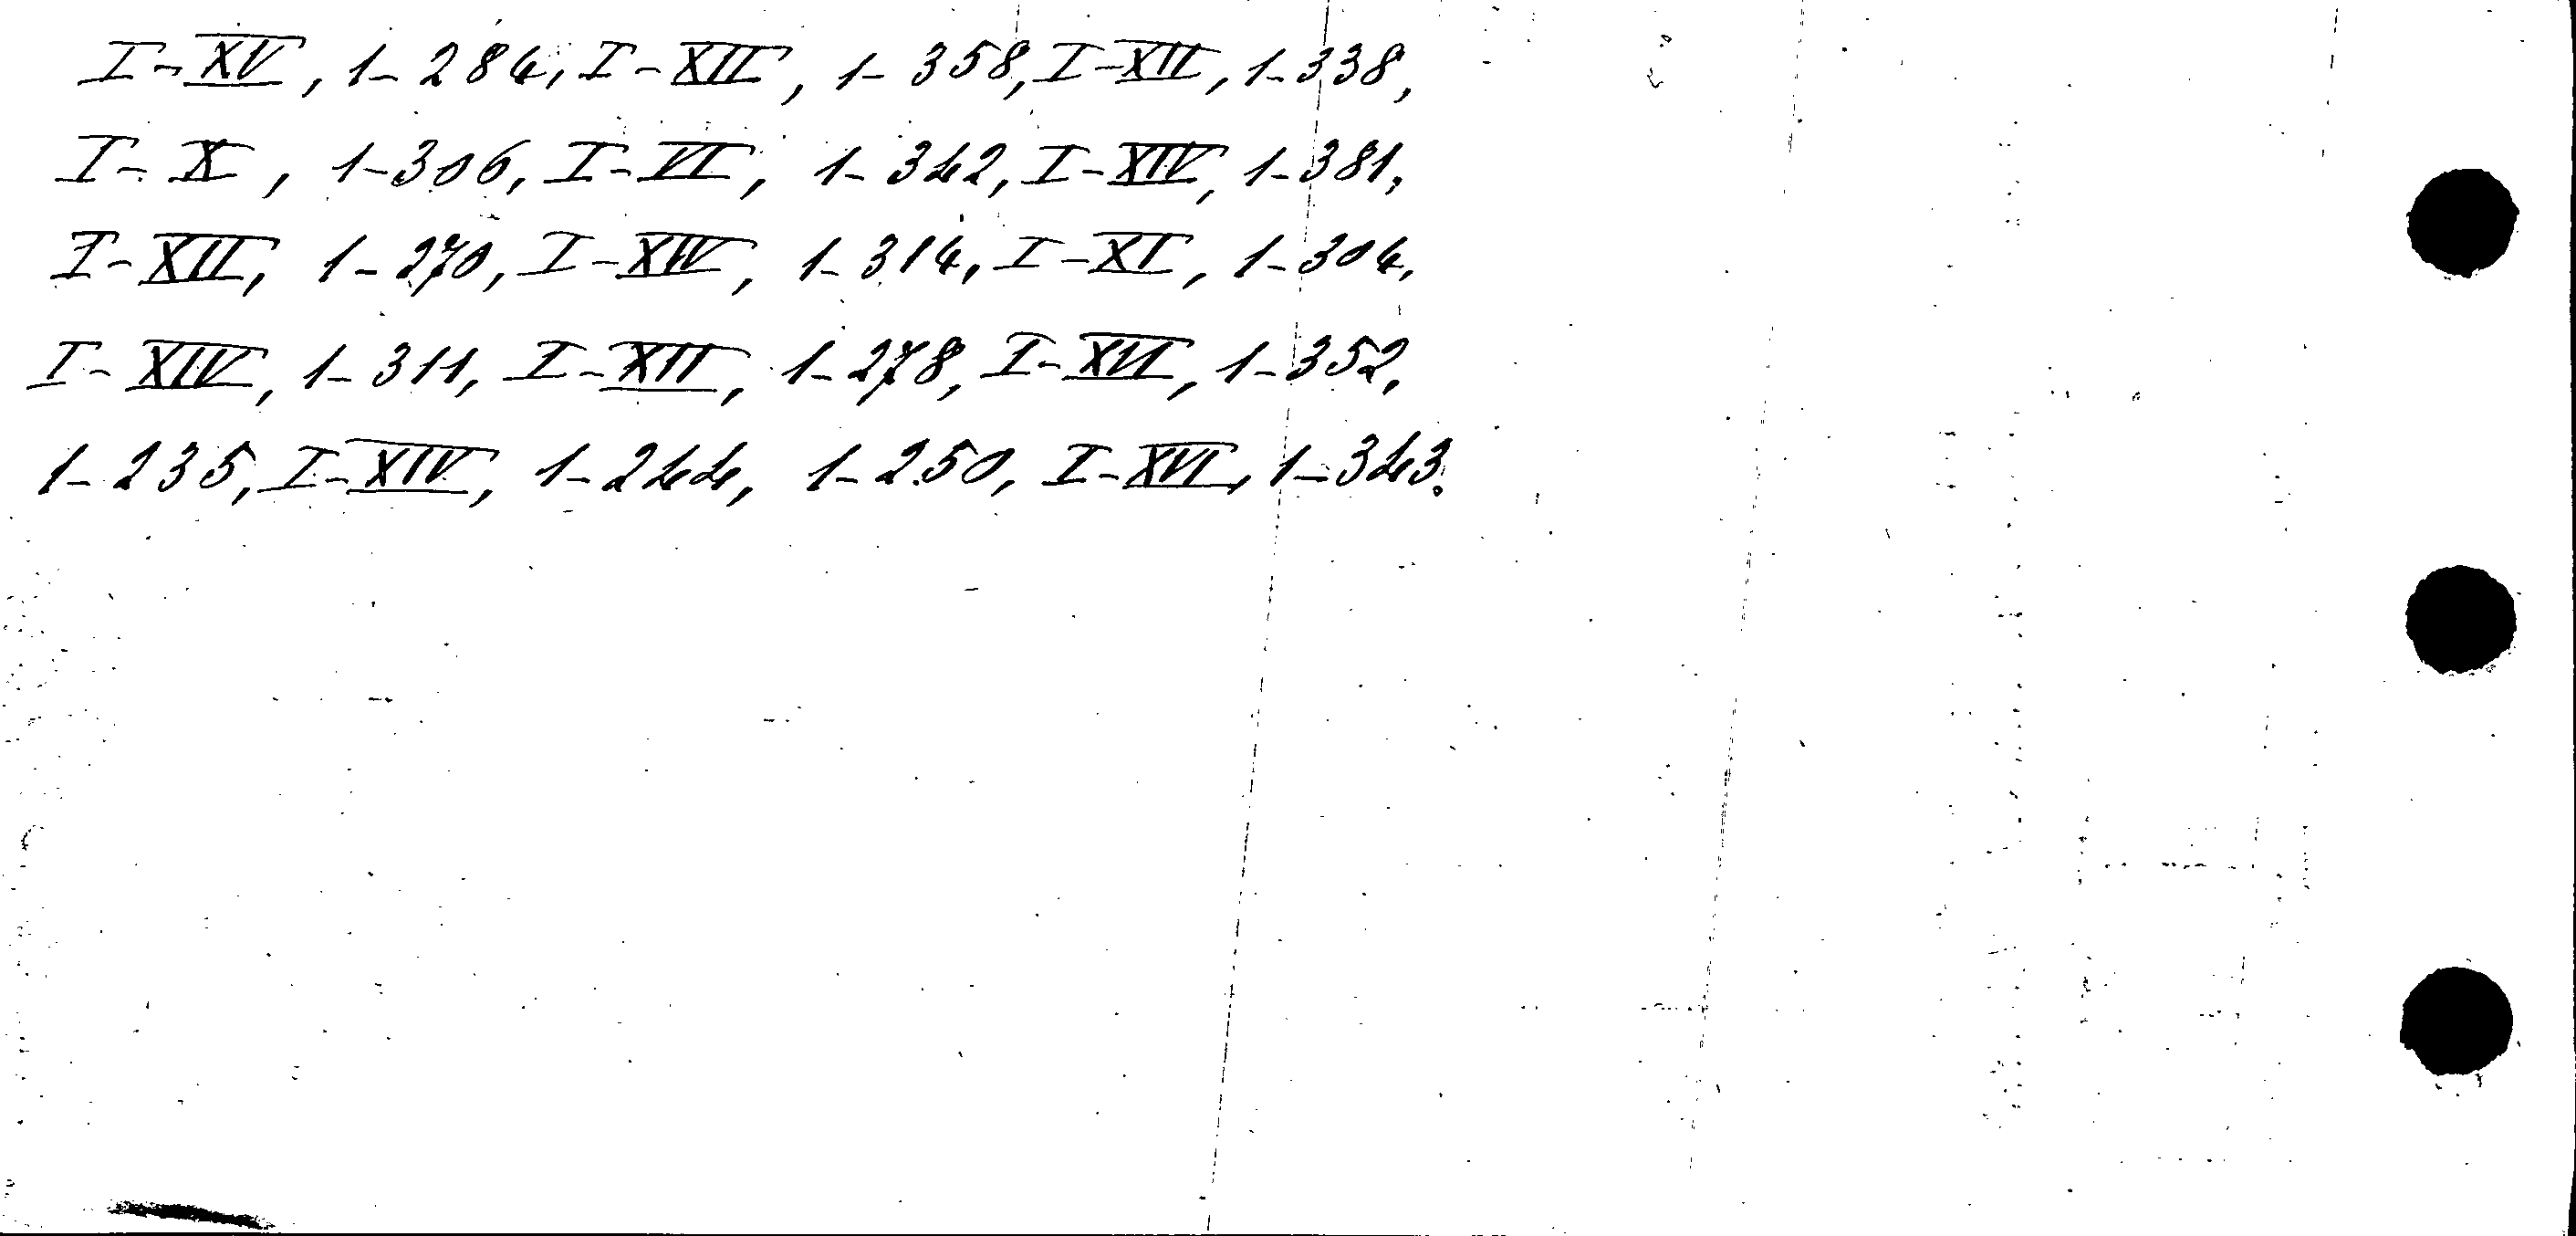 I-XV, 1-284, I-XII, 1-358, I-XII, 1-338,
I-X, 1-306, I-VI, 1-342, I-XIV, 1-381,
I-XII, 1-270, I-XIV, 1-314, I-XI, 1-304,
I-XIV, 1-311, I-XII, 1-278, I-XVI, 1-352,
1-235, I-XIV, 1-244, 1-250, I-XVI, 1-343.